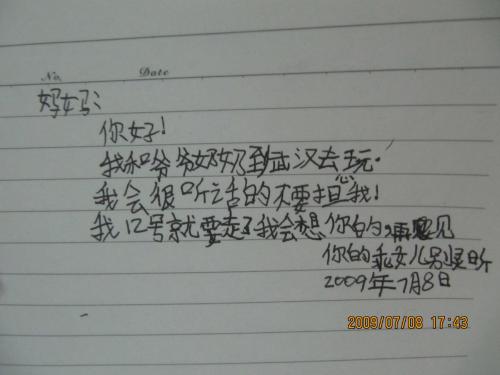 No.
Date
妈妈：
你好！
我和爷爷奶奶到武汉去玩.
我会很听话的不要担我！
我12号就要走了我会想你的,再见
你的乖女儿
2009年7月8日
2009/07/08 17:43